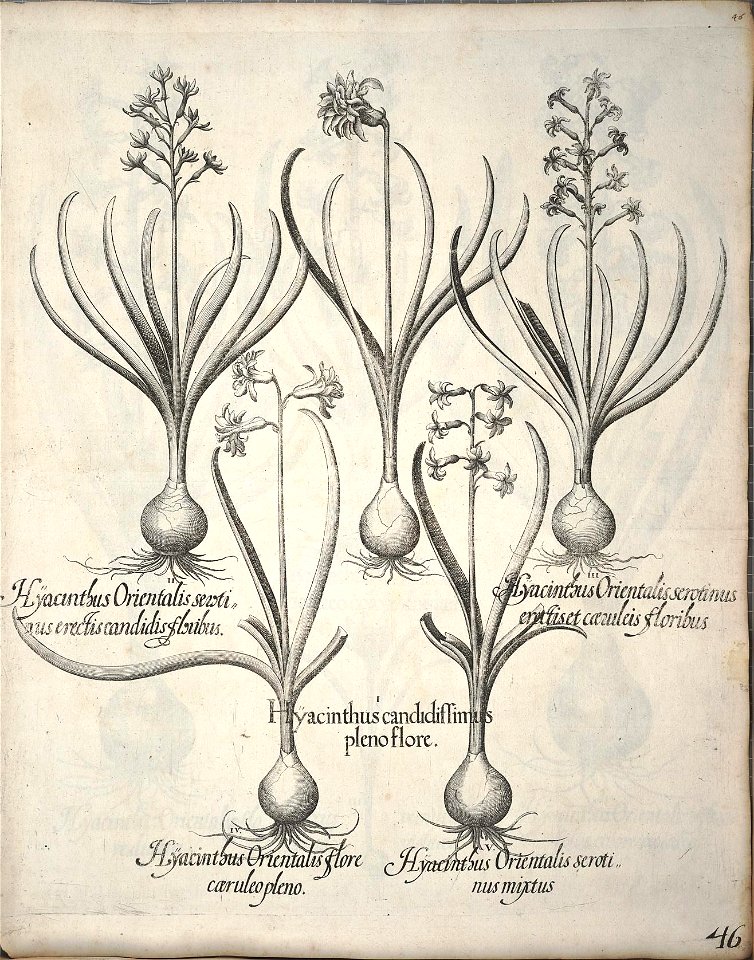 46
II
Hÿacinthus Orientalis seroti„
nus erectis candidis floribus.
III
Hÿacinthus Orientalis serotinus
erectis et cæruleis floribus
I
Hÿacinthus candidiſſimus
pleno flore.
IV.
Hÿacinthus Orientalis flore
cæruleo pleno.
V.
Hÿacinthus Orientalis seroti„
nus mixtus
46